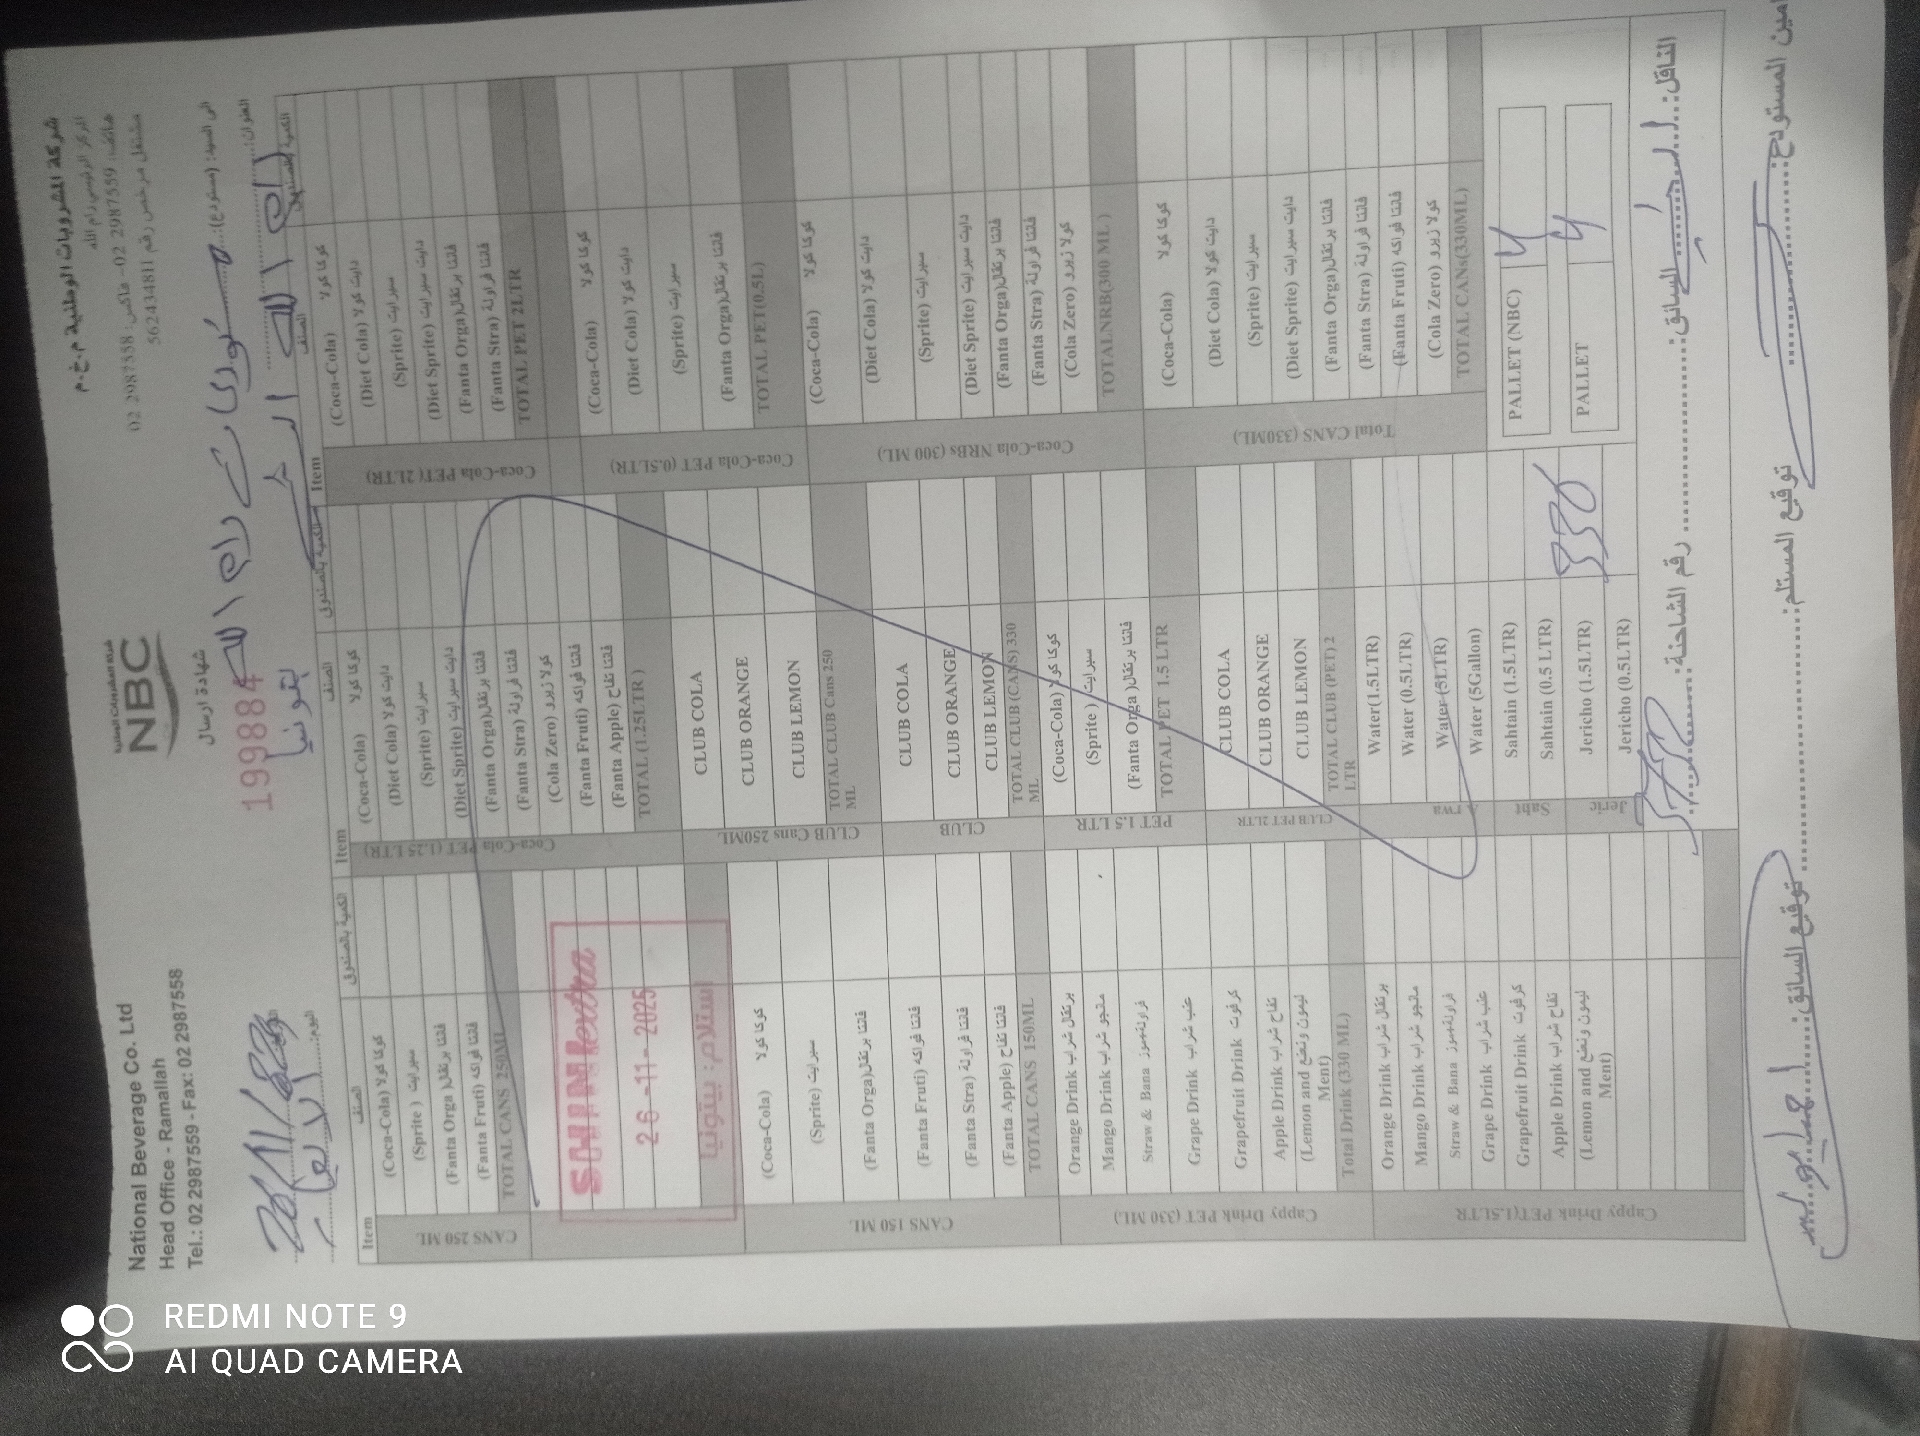 National Beverage Co. Ltd
Head Office - Ramallah
Tel.: 02 2987559 - Fax: 02 2987558
شركة المشروبات الوطنية
NBC
شركة المشروبات الوطنية م.خ.م
المركز الرئيسي رام الله
هاتف: 2987559 02- فاكس: 2987558 02
مشتغل مرخص رقم 562434811
شهادة ارسال
199884
الى السيد: (مستودع):
رام الله
العنوان:
بتونيا
اليوم: الاربعاء
Item الصنف الكمية بالصندوق
CANS 250 ML
(Coca-Cola) كوكا كولا
(Sprite ) سبرايت
(Fanta Orga) فانتا برتقال
(Fanta Fruti) فانتا فواكه
TOTAL CANS 250ML
SHINI extra
26-11-2025
استلام: بيتونيا
CANS 150 ML
(Coca-Cola) كوكا كولا
(Sprite) سبرايت
(Fanta Orga) فانتا برتقال
(Fanta Fruti) فانتا فواكه
(Fanta Stra) فانتا فراولة
(Fanta Apple) فانتا تفاح
TOTAL CANS 150ML
Cappy Drink PET (330 ML)
Orange Drink برتقال شراب
Mango Drink منجو شراب
Straw & Bana فراولة موز
Grape Drink عنب شراب
Grapefruit Drink كرفوت
Apple Drink تفاح شراب
(Lemon and ليمون و نعنع
Ment)
Total Drink (330 ML)
Cappy Drink PET(1.5LTR
Orange Drink برتقال شراب
Mango Drink منجو شراب
Straw & Bana فراولة موز
Grape Drink عنب شراب
Grapefruit Drink كرفوت
Apple Drink تفاح شراب
(Lemon and ليمون و نعنع
Ment)
Item الصنف الكمية بالصندوق
Coca-Cola PET (1.25 LTR)
(Coca-Cola) كوكا كولا
(Diet Cola) دايت كولا
(Sprite) سبرايت
(Diet Sprite) دايت سبرايت
(Fanta Orga) فانتا برتقال
(Fanta Stra) فانتا فراولة
(Cola Zero) كولا زيرو
(Fanta Fruti) فانتا فواكه
(Fanta Apple) فانتا تفاح
TOTAL (1.25LTR )
CLUB Cans 250ML
CLUB COLA
CLUB ORANGE
CLUB LEMON
TOTAL CLUB Cans 250
ML
CLUB
CLUB COLA
CLUB ORANGE
CLUB LEMON
TOTAL CLUB (CANS) 330
ML
PET 1.5 LTR
(Coca-Cola) كوكا كولا
(Sprite ) سبرايت
(Fanta Orga ) فانتا برتقال
TOTAL PET 1.5 LTR
CLUB PET 2LTR
CLUB COLA
CLUB ORANGE
CLUB LEMON
TOTAL CLUB (PET) 2
LTR
Arwa
Water(1.5LTR)
Water (0.5LTR)
Water (5LTR)
Water (5Gallon)
Saht
Sahtain (1.5LTR)
Sahtain (0.5 LTR)
Jeric
Jericho (1.5LTR) 336
Jericho (0.5LTR)
Item الصنف الكمية بالصندوق
Coca-Cola PET (2LTR)
(Coca-Cola) كوكا كولا
(Diet Cola) دايت كولا
(Sprite) سبرايت
(Diet Sprite) دايت سبرايت
(Fanta Orga) فانتا برتقال
(Fanta Stra) فانتا فراولة
TOTAL PET 2LTR
Coca-Cola PET (0.5LTR)
(Coca-Cola) كوكا كولا
(Diet Cola) دايت كولا
(Sprite) سبرايت
(Fanta Orga) فانتا برتقال
TOTAL PET(0.5L)
Coca-Cola NRBs (300 ML )
(Coca-Cola) كوكا كولا
(Diet Cola) دايت كولا
(Sprite) سبرايت
(Diet Sprite) دايت سبرايت
(Fanta Orga) فانتا برتقال
(Fanta Stra) فانتا فراولة
(Cola Zero) كولا زيرو
TOTALNRB(300 ML )
Total CANS (330ML)
(Coca-Cola) كوكا كولا
(Diet Cola) دايت كولا
(Sprite) سبرايت
(Diet Sprite) دايت سبرايت
(Fanta Orga) فانتا برتقال
(Fanta Stra) فانتا فراولة
(Fanta Fruti) فانتا فواكه
(Cola Zero) كولا زيرو
TOTAL CANs(330ML)
PALLET (NBC) 4
PALLET 4
الناقل: السائق: رقم الشاحنة:
امين المستودع: توقيع المستلم: توقيع السائق:
REDMI NOTE 9
AI QUAD CAMERA